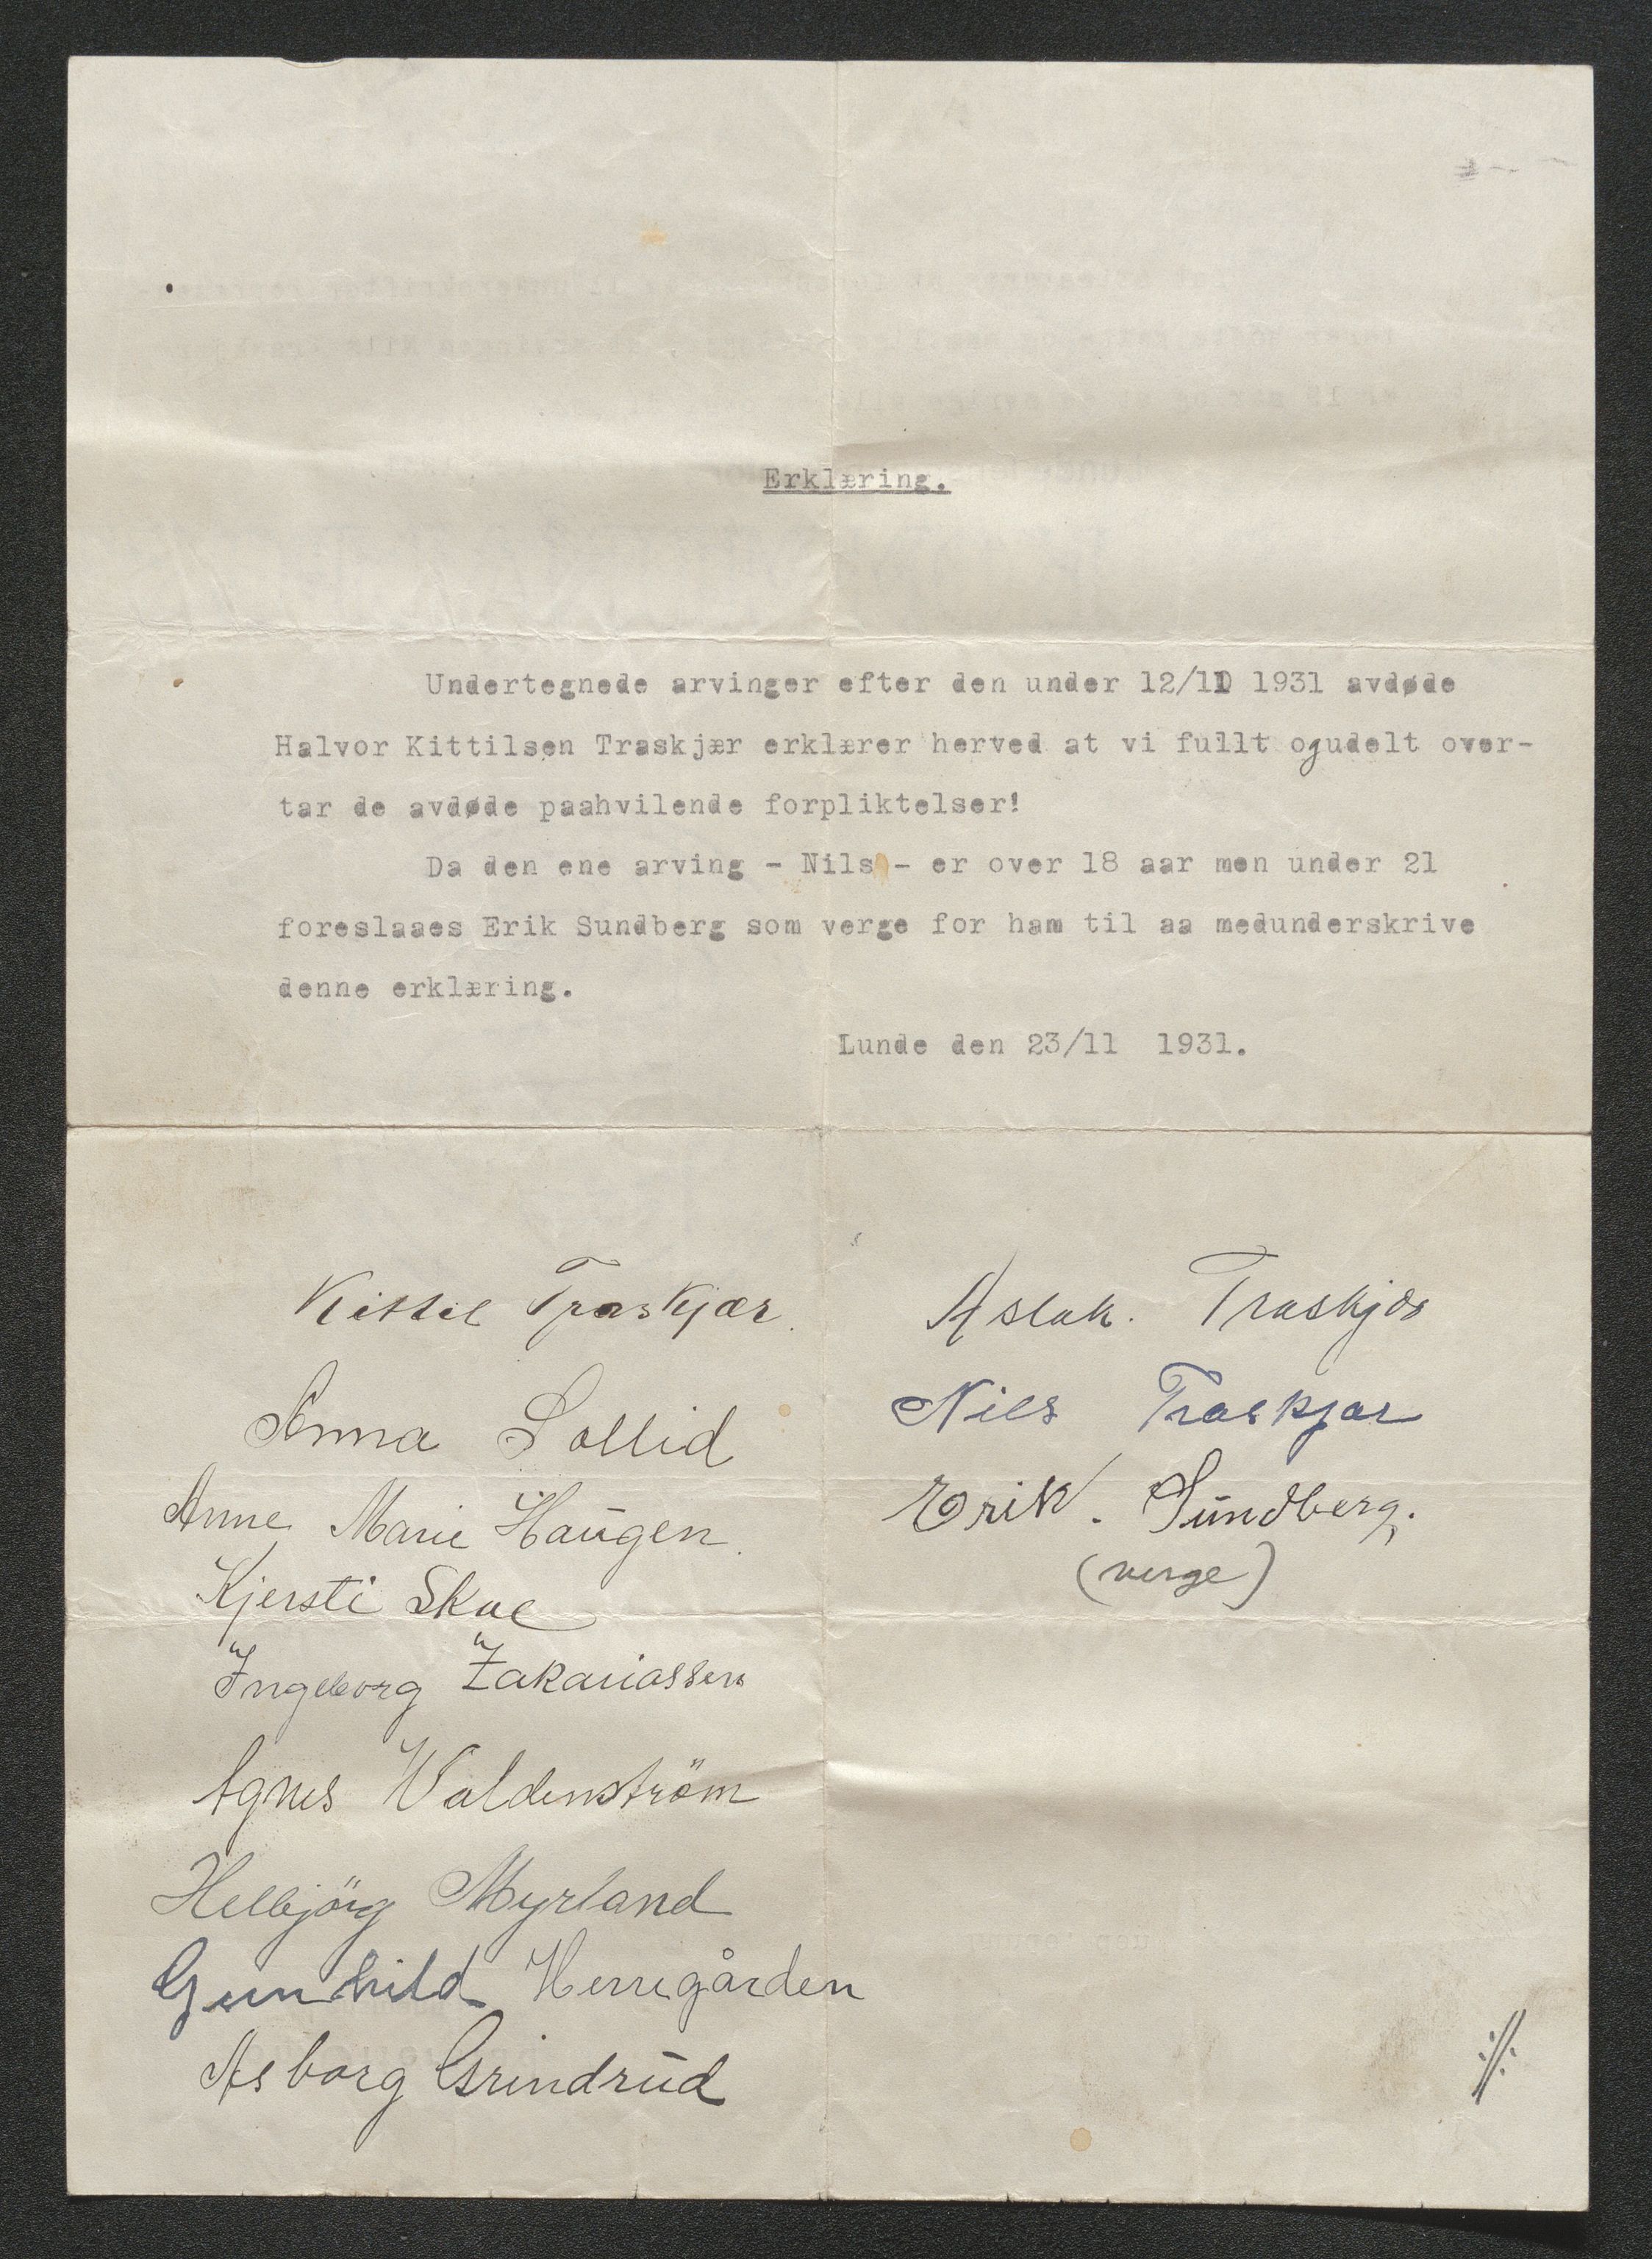 Erklæring.
Undertegnede arvinger efter den under 12/11 1931 avdøde
Halvor Kittilsen Traskjær erklærer herved at vi fullt ogudelt over-
tar de avdøde paahvilende forpliktelser!
Da den ene arving - Nils - er over 18 aar men under 21
foreslaaes Erik Sundberg som verge for ham til aa medunderskrive
denne erklæring.
Lunde den 23/11 1931.
Kittil Traskjær.
Anna Sollid
Anne Marie Haugen.
Kjersti Skoe
Ingeborg Zakariassen
Agnes Waldenström
Helbjörg Myrland
Gunhild Herregården
Asborg Grindrud
Aslak. Traskjær
Nils Traskjær
Erik. Sundberg.
(verge)
./.